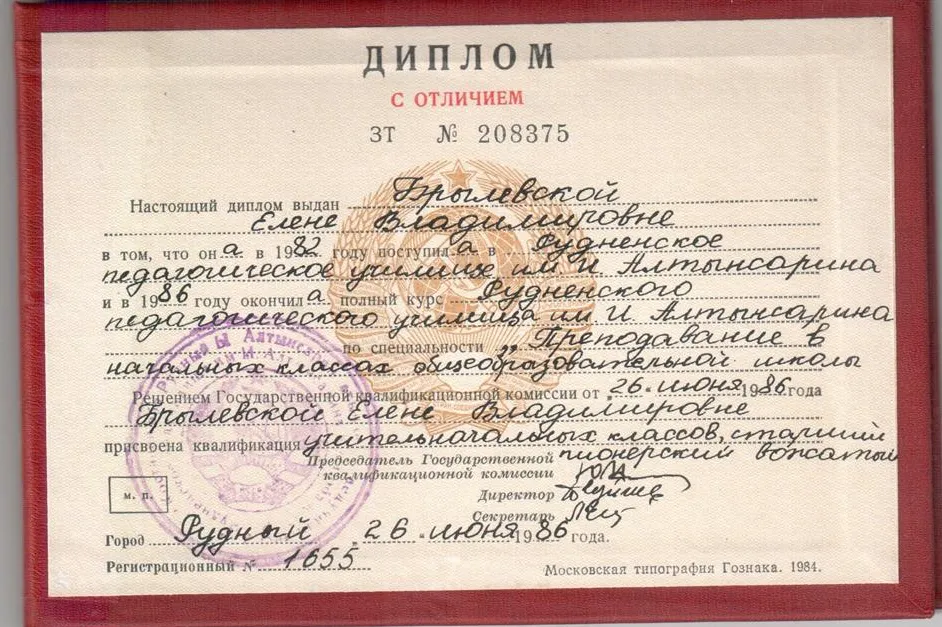 ДИПЛОМ
С ОТЛИЧИЕМ
ЗТ № 208375
Настоящий диплом выдан Брылевской
Елене Владимировне
в том, что он а в 1982 году поступил а в Рудненское
педагогическое училище им И. Алтынсарина
и в 1986 году окончил а полный курс Рудненского
педагогического училища им И. Алтынсарина
по специальности „Преподавание в
начальных классах общеобразовательной школы
Решением Государственной квалификационной комиссии от „26“ июня 1986 года
Брылевской Елене Владимировне
присвоена квалификация учитель начальных классов, старший
Председатель Государственной пионерский вожатый
квалификационной комиссии
Директор
Секретарь
М. П.
Город Рудный „26“ июня 1986 года.
Регистрационный № 1655
Московская типография Гознака. 1984.